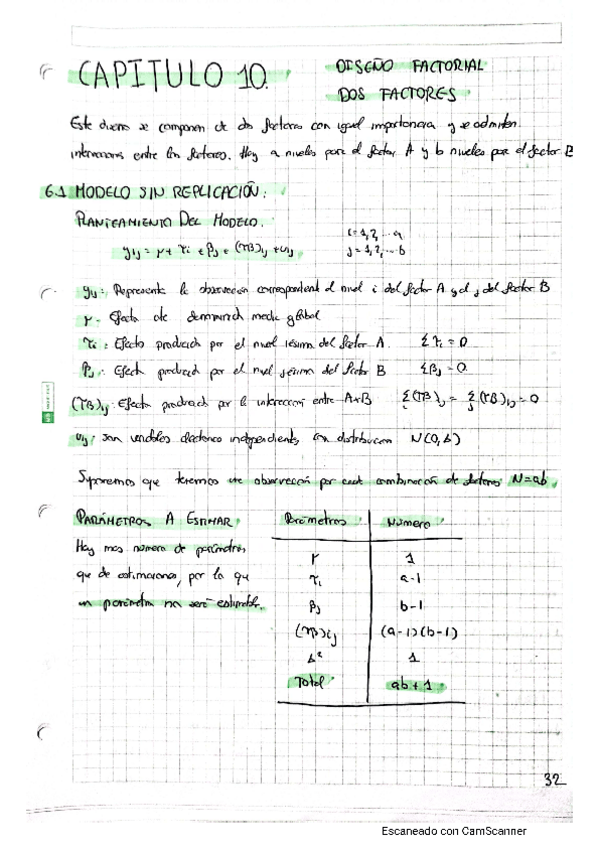 CAPITULO 10.
DISEÑO FACTORIAL
DOS FACTORES
Este diseño se componen de dos factores con igual importancia y se admiten
interacciones entre los factores. Hay a niveles para el factor A y b niveles para el factor B
6.1 MODELO SIN REPLICACIÓN:
PLANTEAMIENTO DEL MODELO.
yij = μ + τi + βj + (τβ)ij + uij
i=1,2,...a
j=1,2,...b
yij: Representa la observación correspondient al nivel i del factor A y el j del factor B
μ: Efecto de media global
τi: Efecto producido por el nivel iésimo del factor A. Στi = 0
βj: Efecto producido por el nivel jésimo del factor B Σβj = 0
(τβ)ij: Efecto producido por la interacción entre AxB Σi(τβ)ij = Σj(τβ)ij = 0
uij: son variables aleatorias independientes, con distribución N(0,σ)
Suponemos que tenemos una observación por cada combinación de factores N=ab.
PARÁMETROS A ESTIMAR
Hay mas número de parámetros
que de estimaciones, por lo que
un parámetro no será estimable.
Parámetros Número
μ 1
τi a-1
βj b-1
(τβ)ij (a-1)(b-1)
σ² 1
Total ab+1
32
Escaneado con CamScanner